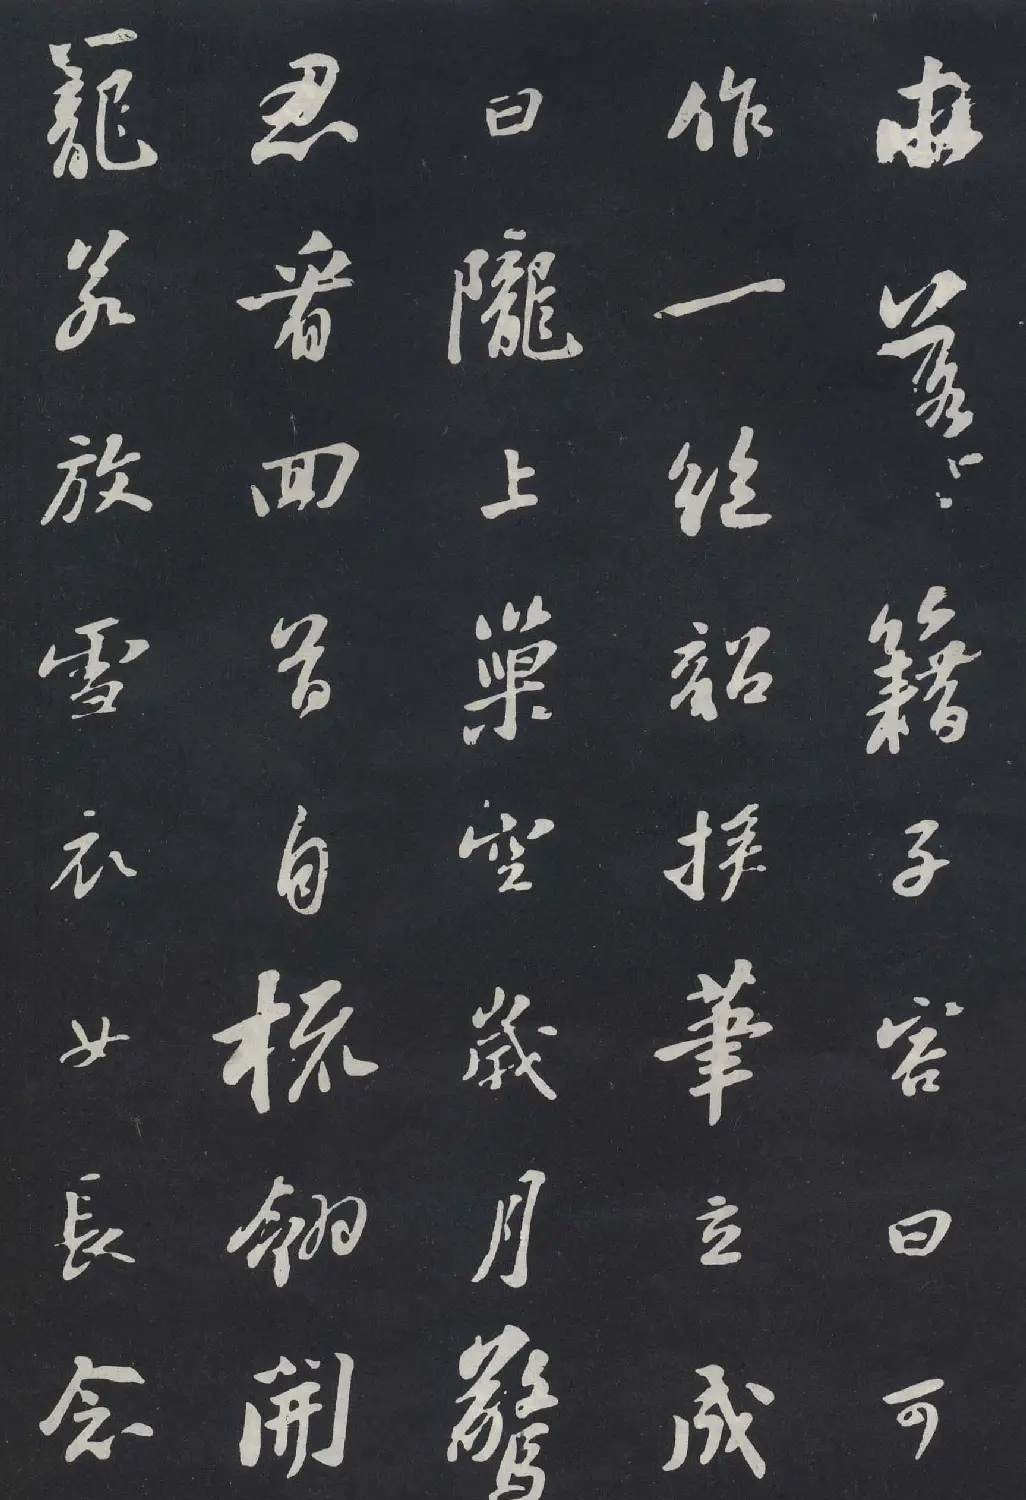 求落籍子容曰可
作一絕韶援筆立成
曰隴上巢空歲月驚
忍看回首自梳翎開
籠若放雪衣女長念